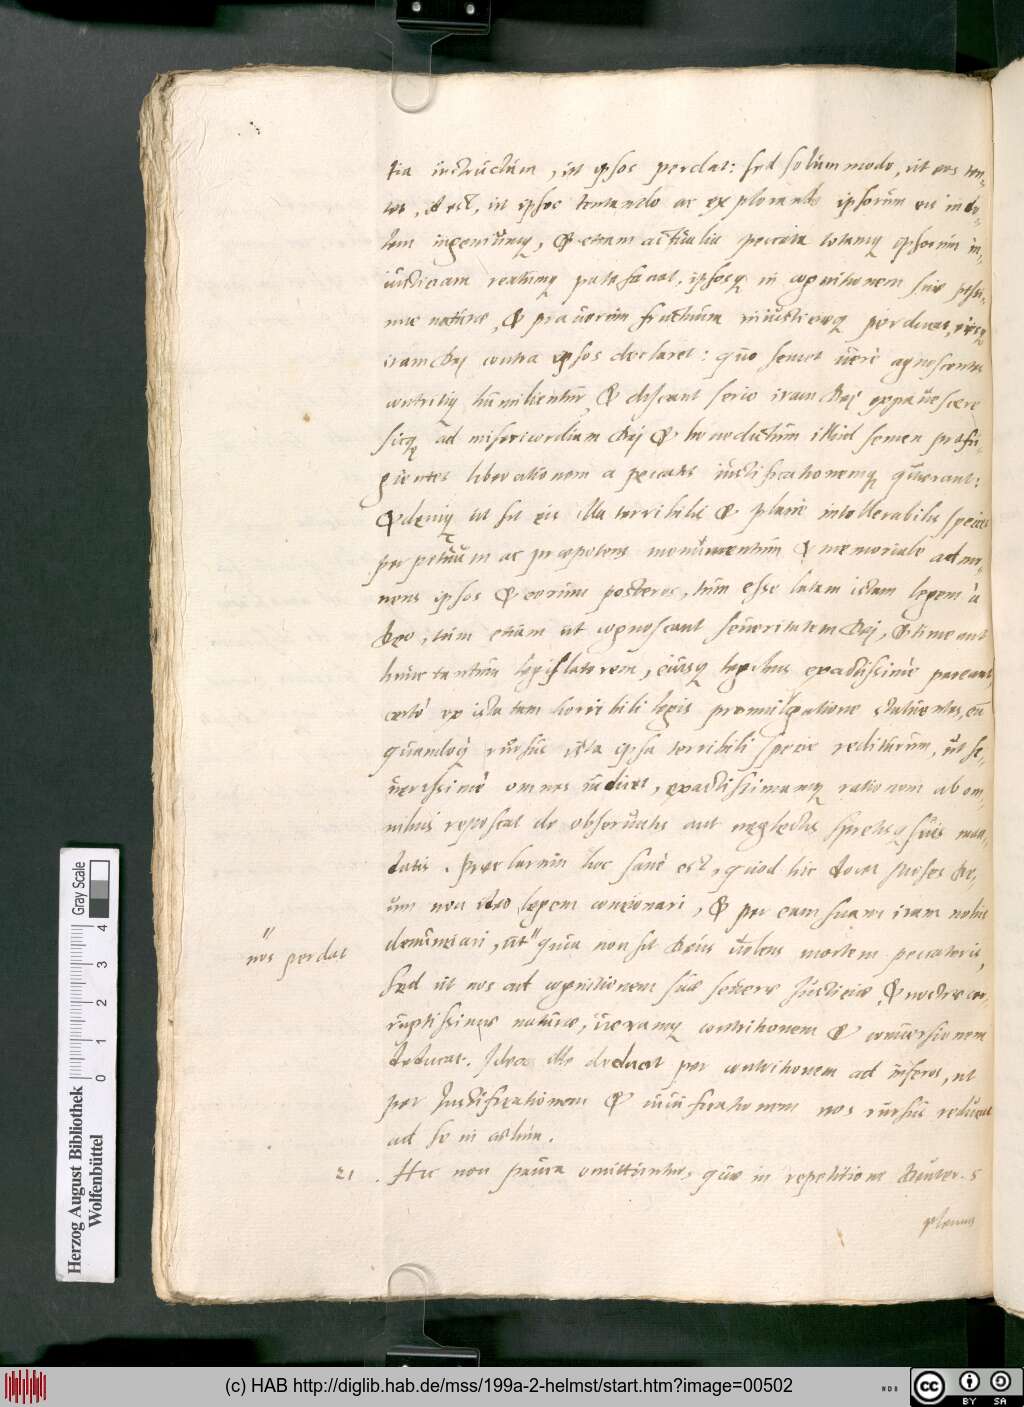 tia instructum, ut ipsos perdat: sed solummodo, ut eos ten-
tet, id est, ut ipsos tentando ac explorando ipsorum eis indo-
lem ingeniumq, & etiam actualia peccata totamq ipsorum in-
iusticiam reatumq patefaciat, ipsosq in cognitionem suae pessi-
mae naturae, & pravorum fructuum iniusticiaeq perducat,
iram Dej contra ipsos declaret: quo semet verè agnoscentes
contritiq humilientur & discant serio iram Dej expavescere
sicq ad misericordiam Dej & benedictum illud semen profu-
gientes liberationem a peccatis iustificationemq quaerant:
& deniq ut sit eis illa terribilis & planè intollerabilis species
perpetuum ac praepotens monumentum & memoriale admo-
nens ipsos & eorum posteros, tum esse latam istam legem à
Deo, tum etiam ut cognoscant severitatem Dej, & timeant
hunc tantum legislatorem, eiusq legibus exactissimè pareant,
certò ex ista tam horribili legis promulgatione statuentes, eum
quandoq rursus ista ipsa terribili specie rediturum, ut se-
verissimè omnes iudicet, exactissimamq rationem ab om-
nibus reposcat de observatis aut neglectis spretisq suis man-
datis. Praeclarum hoc sanè est, quod hic docet Moses De-
um non ideo legem concionari, & per eam suam iram nobis
denunciari, ut" quia non sit Deus volens mortem peccatoris,
" nos perdat
sed ut nos ad cognitionem suae severae Iusticiae & nostrae cor-
ruptissimae naturae, veramq contritionem & conversionem
deducat. Ideo ille deducat per contritionem ad inferos, ut
per Iustificationem & vivificationem nos rursus reducat
ad se in coelum.
21. Hic non pauca omittuntur, quae in repetitione Deuter. 5
plenius
Gray Scale
0 1 2 3 4
Herzog August Bibliothek
Wolfenbüttel
(c) HAB http://diglib.hab.de/mss/199a-2-helmst/start.htm?image=00502
cc BY SA